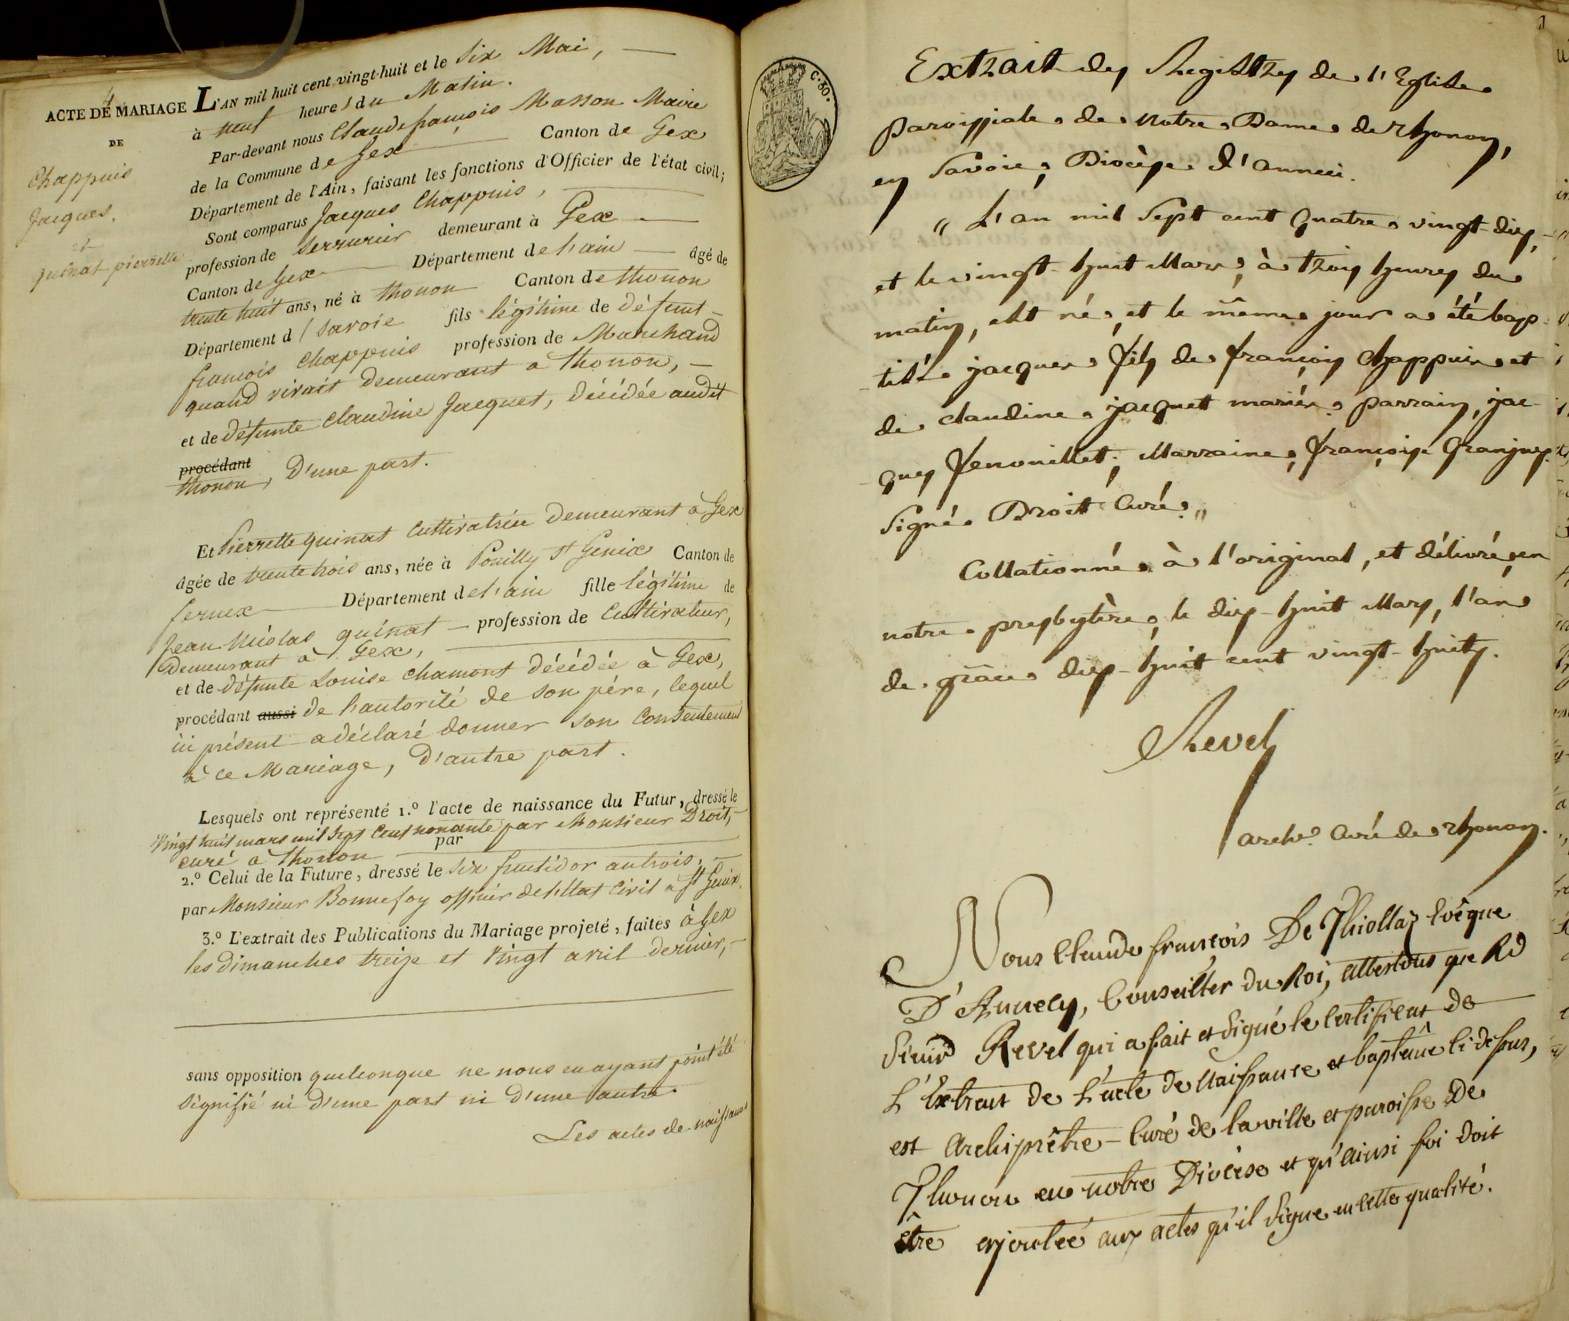 ACTE DE MARIAGE
DE
Chappuis
Jacques.
et
quinat pierrette
L'AN mil huit cent vingt-huit et le Six Mai,
à neuf heures du Matin.
Par-devant nous Claude françois Masson Maire
de la Commune de Gex Canton de Gex
Département de l'Ain, faisant les fonctions d'Officier de l'état civil;
Sont comparus Jacques Chappuis,
profession de Serrurier demeurant à Gex
Canton de Gex Département de l'ain âgé de
trente huit ans, né à Thonon Canton de thonon
Département d / Savoie fils légitime de défunt
françois Chappuis profession de Marchand
quand vivait demeurant a Thonon,
et de défunte Claudine Jacquet, décédée audit
procédant
thonon, D'une part.
Et Pierrette quinat Cultivatrice Demeurant à Gex
âgée de trente trois ans, née à Pouilly St Genix Canton de
fernex Département de l'ain fille légitime de
Jean Nicolas quinat profession de Cultivateur,
Demeurant à Gex,
et de défunte Louise Chamont décédée à Gex,
procédant aussi de l'autorité de son père, lequel
ici présent a déclaré donner son Consentement
à ce Mariage, D'autre part.
Lesquels ont représenté 1.º l'acte de naissance du Futur, dressé le
Vingt huit mars mil Sept Cent nonante par Monsieur Droit,
curé à Thonon par
2.º Celui de la Future, dressé le Six fructidor an trois,
par Monsieur Bonnefoy officier de l'Etat Civil à St Genix.
3.º L'extrait des Publications du Mariage projeté, faites à Gex
les dimanches treize et Vingt avril dernier,
sans opposition quelconque ne nous en ayant point été
Signifié ni d'une part ni d'une autre.
Les actes de naissance
C. 80.
Extrait des Registres de l'Eglise
paroissiale de Notre Dame de Thonon,
en Savoie, Diocèse d'Anneci.
" L'an mil Sept cent quatre vingt dix,
et le vingt huit Mars, à trois heures du
matin, est né, et le même jour a été bap-
tisé jacques fils de françois Chappuis et
de claudine jacquet mariés, parrain, jac-
ques fenouillet; Marraine, françoise Granjux.
Signé Droit Curé."
Collationné à l'original, et délivré en
notre presbytère, le dix-huit Mars, l'an
de grâce dix-huit cent vingt-huit.
Revel
arch. Curé de Thonon.
Nous Claude françois De Thiollaz Evêque
D'Annecy, Conseiller du Roi, attestons que Rd
Sieur Revel qui a fait et signé le Certificat de
L'Extrait de L'acte de Naissance et baptême ci dessus,
est Archiprêtre-Curé de la ville et paroisse De
Thonon en notre Diocèse et qu'ainsi foi doit
être ajoutée aux actes qu'il signe en cette qualité.